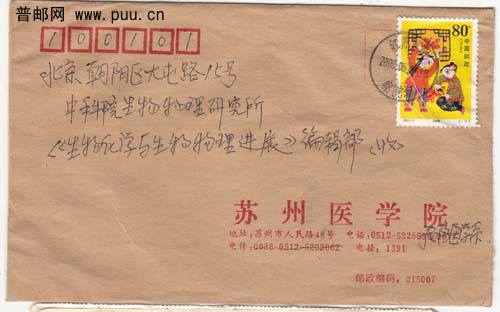 普邮网 www.puu.com.cn
100101
80分
中国邮政
北京朝阳区大屯路15号
中科院生物物理研究所
《生物化学与生物物理进展》编辑部 (收)
苏州医学院
地址:苏州市人民路48号 电话:0512-5225
电传:0086-0512-5202662 电挂:1331
邮政编码:215007